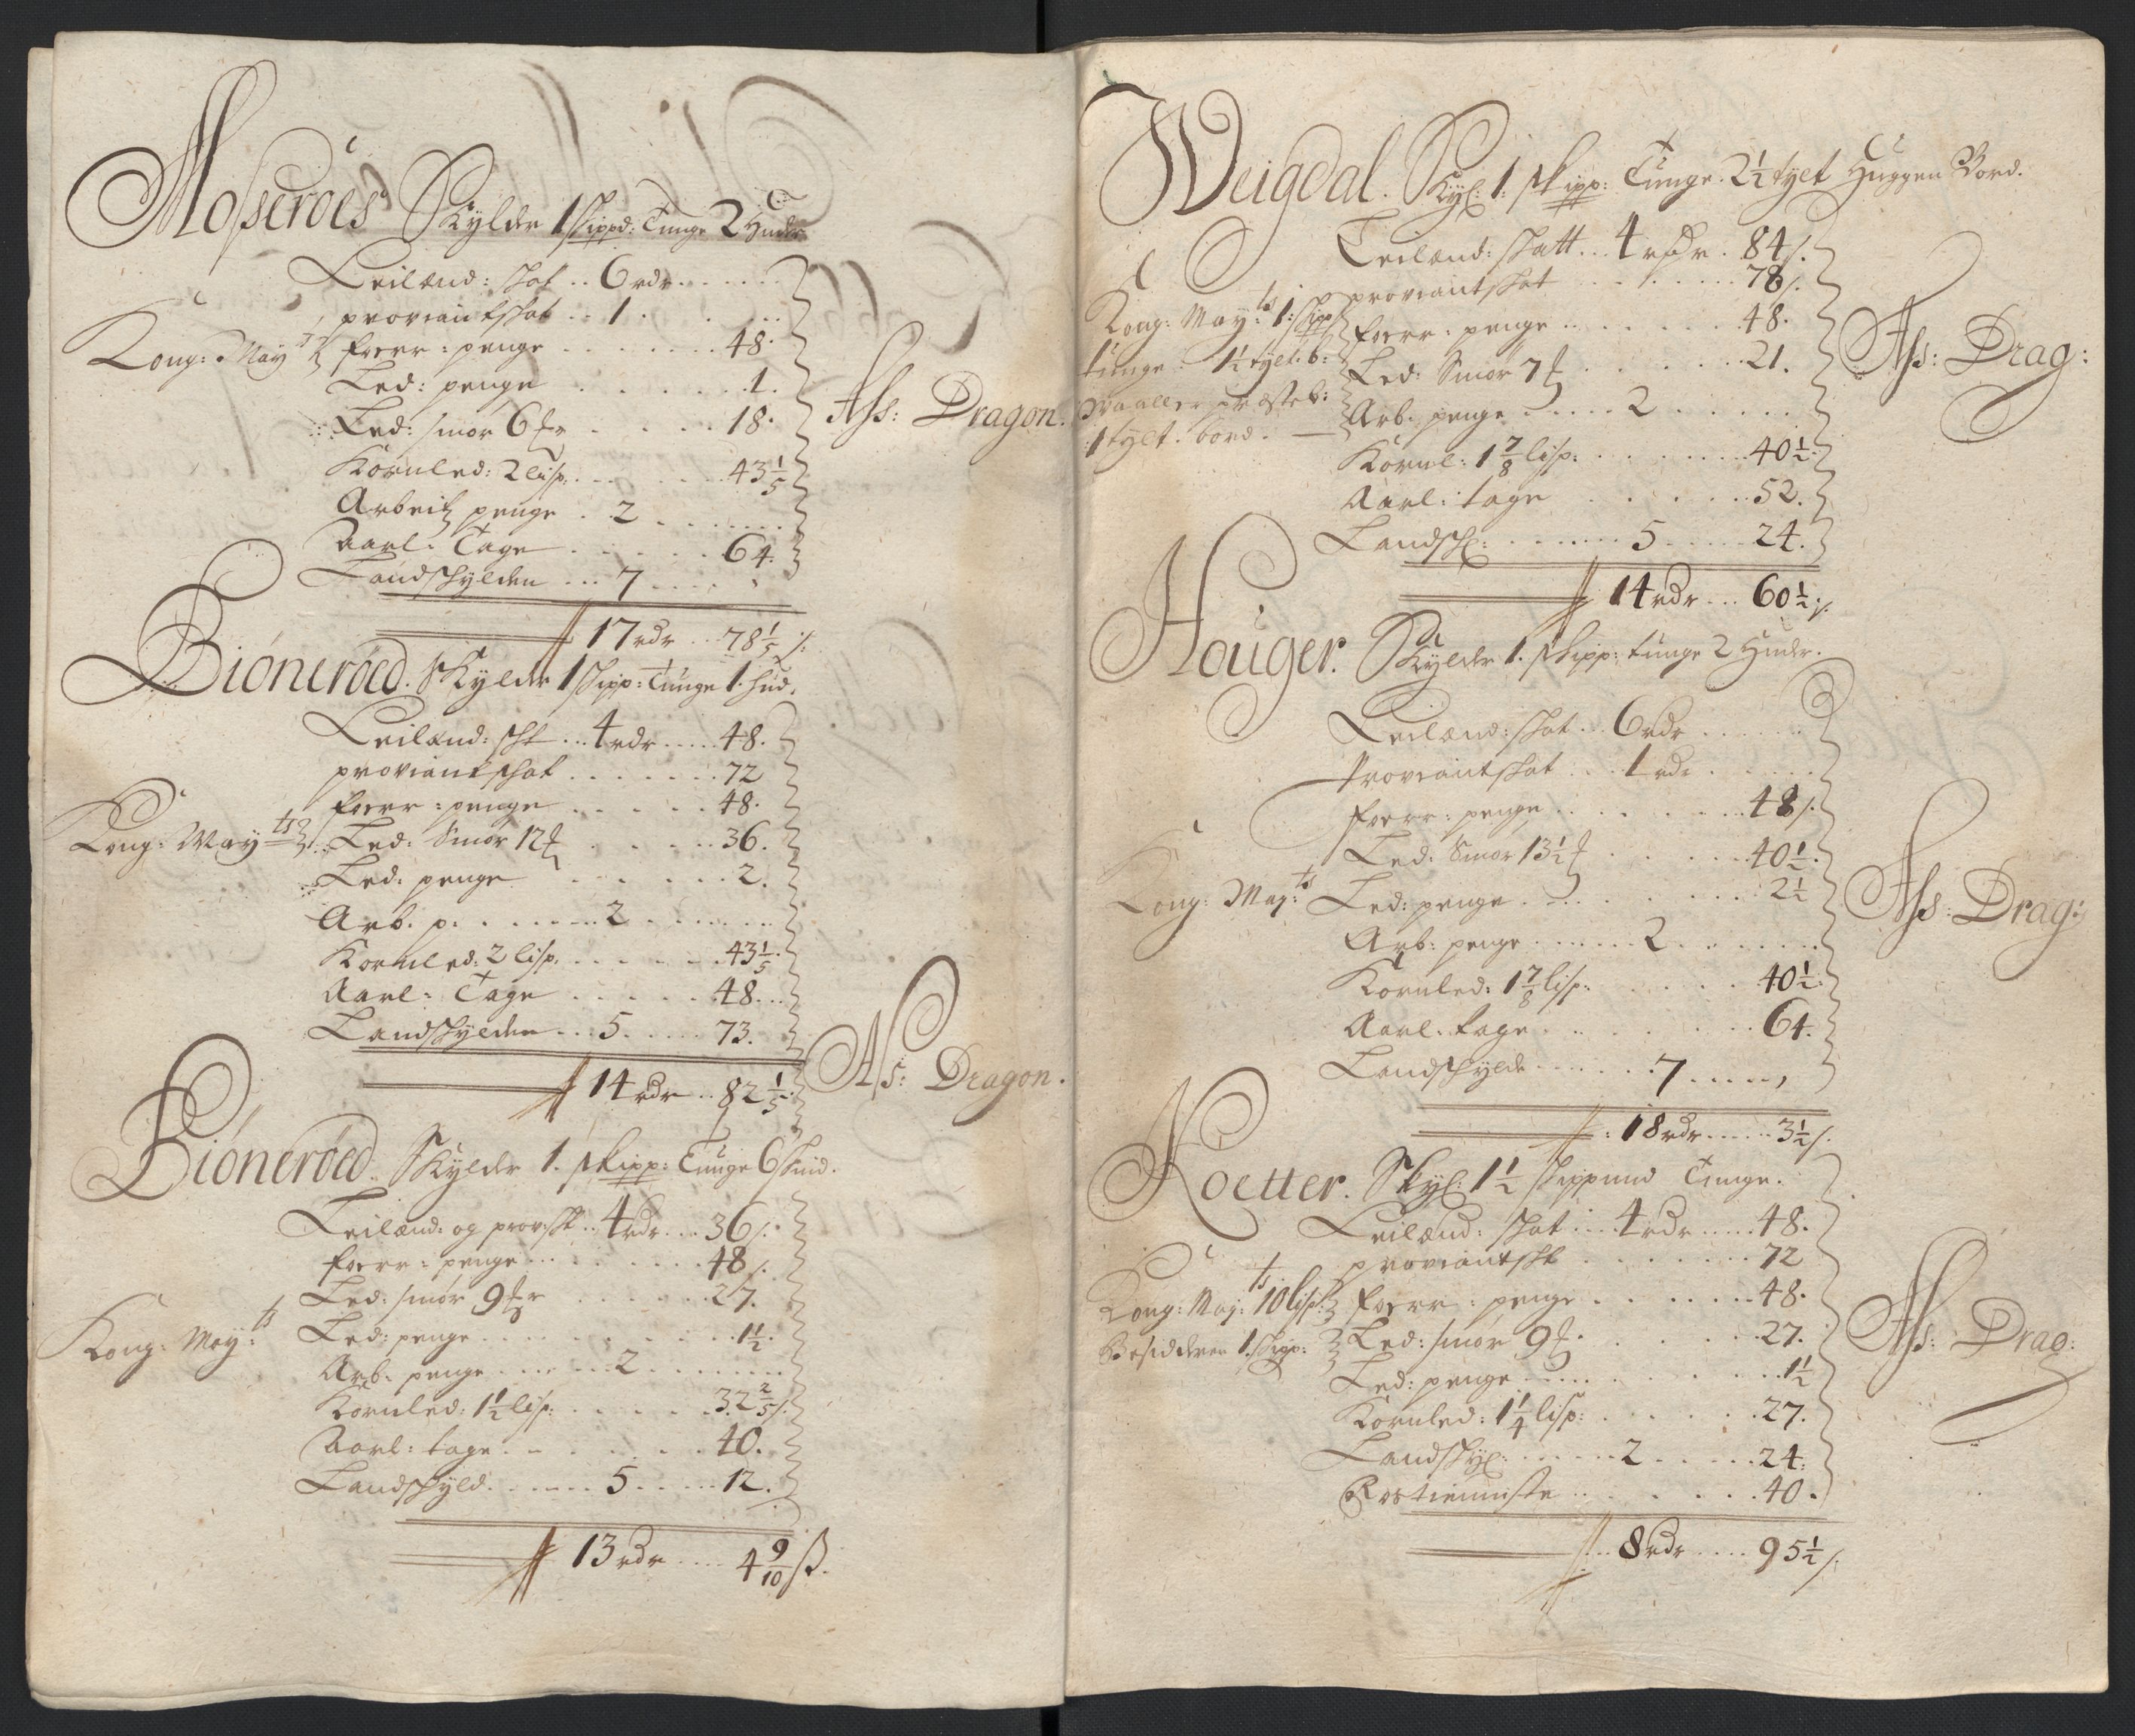 Moseroes Skylder 1 skippd: Tunge 2 Huder
Leilænd: skat .. 6 rdr
proviantskat .. 1
Kong: Mayts foerr: penge 48.
Led: penge 1.
Led: smör 6 18.
Ass: Dragon.
Kornled: 2 lisp: 43 1/5
Arbeitz penge . 2
Aarl: Tage 64.
Landskylden ... 7
17 rdr .. 78 1/5 s:
Biöneröed. Skylder 1 skipp: Tunge 1. hud.
Leilænd: skt ... 4 rdr .... 48.
proviantskat 72
foerr: penge 48.
Kong: Mayts Led: Smör 12 36.
Led: penge 2.
Arb. p. 2
Kornled: 2 lisp. 43 1/5.
Aarl: Tage 48.
Landskylden ... 5 .... 73.
14 rdr .. 82 1/5.
Ass: Dragon.
Biöneröed. Skylder 1. skipp: Tunge 6 skind.
Leilænd: og prov: skt .. 4 rdr ... 36 s.
foerr: penge 48 s.
Led: smör 9 27.
Kong: May:ts Led: penge 1 1/2.
Arb. penge 2
Kornled: 1 1/2 lisp: 32 2/5 s.
Aarl: tage 40.
Landskyld 5 12.
13 rdr .... 4 9/10 ß.
Weigdal. Skyl: 1. skipp: Tunge. 2 1/2 tylt Huggen Bord.
Leilænd: skatt ... 4 rdr . 84 s.
proviantskat 78 s.
Kong: May:ts 1: skipp foerr: penge 48.
tunge. 1 1/2 tylt: b: Led: Smör 7 21.
Ass: Drag:
Waaller præsteb: Arb. penge 2
1 tylt. bord.
Kornl: 1 7/8 lisp: 40 1/2.
Aarl: tage 52.
Landsk: 5 24.
14 rdr ... 60 1/2 s.
Houger. Skylder 1. skipp: tunge 2 Huder.
Leilænd: skat .. 6 rdr
Proviantskat ... 1 rdr
foerr: penge 48 s.
Led: Smör 13 1/2 40 1/2.
Kong: May:ts Led: penge 2 1/2
Ass: Drag:
Arb: penge 2
Kornled: 1 7/8 lisp: 40 1/2.
Aarl. tage 64.
Landskyld 7
18 rdr 3 1/2 s.
Koetter. Skyl: 1 1/2 skippund Tunge.
Leilænd: skat ... 4 rdr .... 48.
proviantskt 72
Kong: May:ts 10 lisp: foerr: penge 48.
Besidderen 1. skipp: Led: smör 9 27.
Ass: Drag:
Led: penge 1 1/2
Kornled: 1 1/4 lisp: 27.
Landskyl: 2 24.
Rostieniste 40.
8 rdr .... 95 1/2 s.